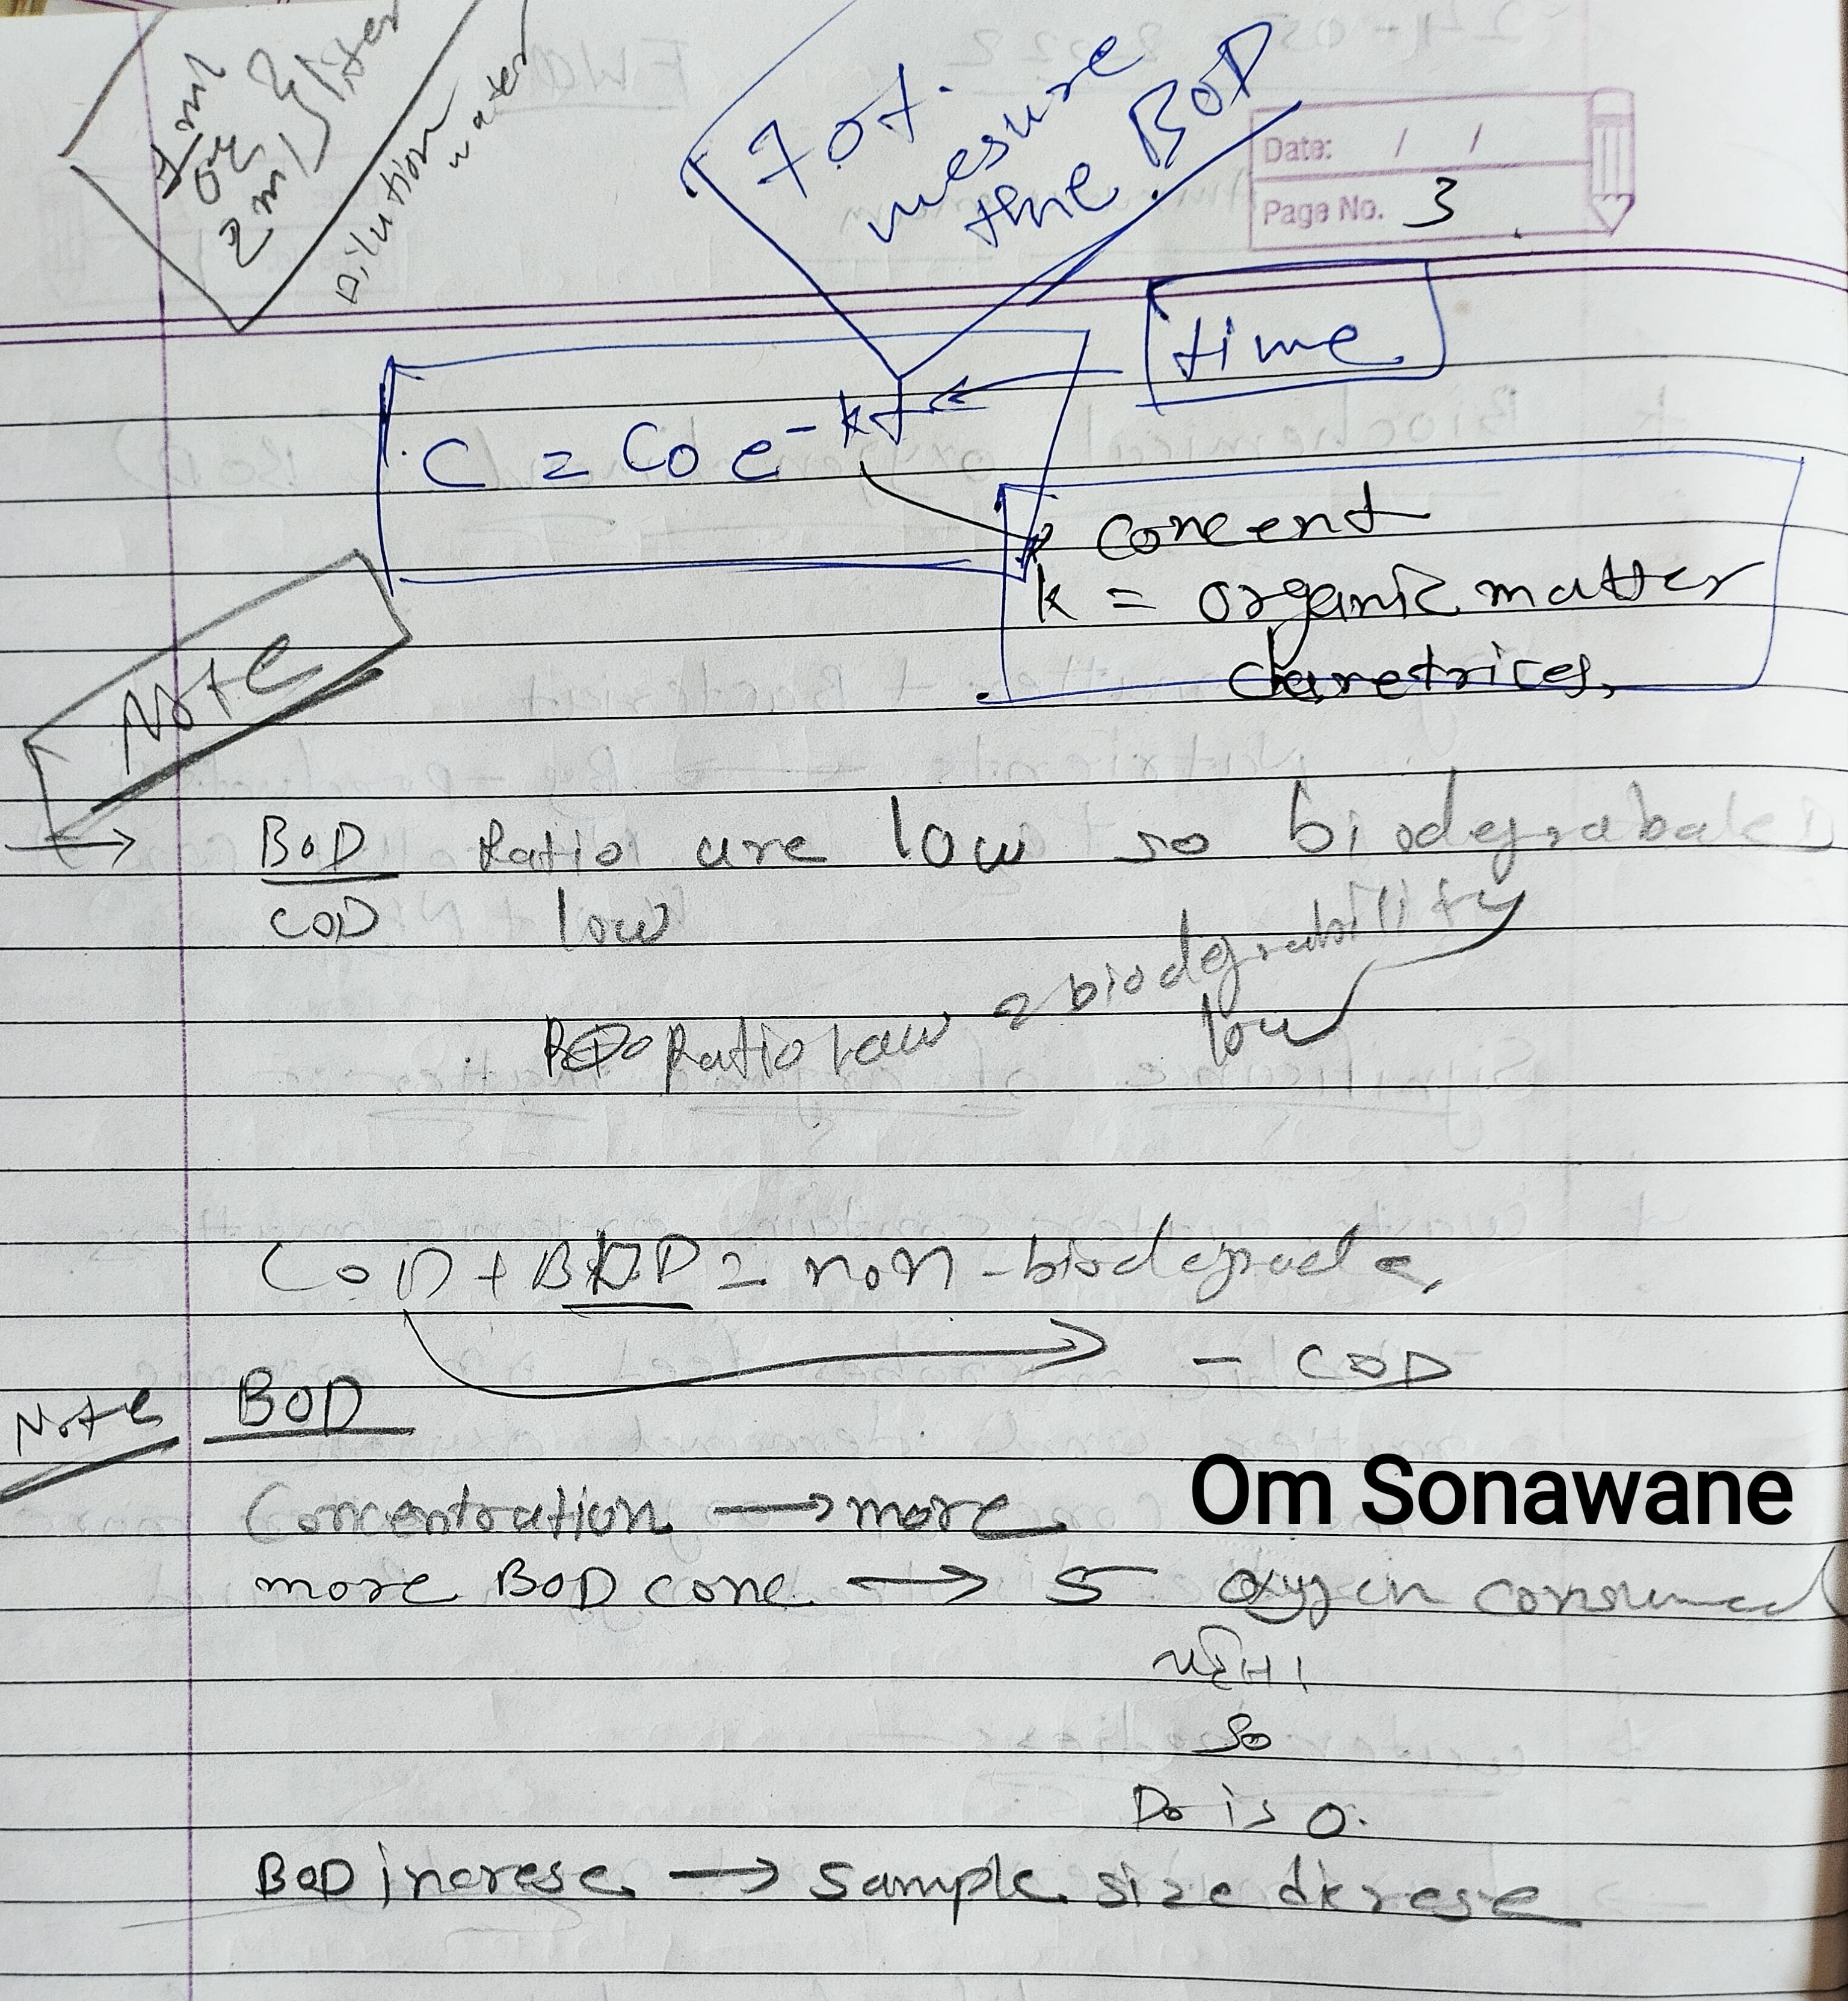 1 ml
or
2 ml
liter
Dilution
water
mesure
the BOD
Date: / /
Page No. 3
time
C = Co e^-kt
concent
k = organic matter
BOD Ratio are low so biodegrabale
COD low
Ratio law = biodegrability
low
COD + BOD = non-biodegrade
- COD
Note BOD
Note
Concentration → more
more BOD conc → 5 oxygen consumed
So
Do is 0.
BOD increse → sample size dicrese
Om Sonawane